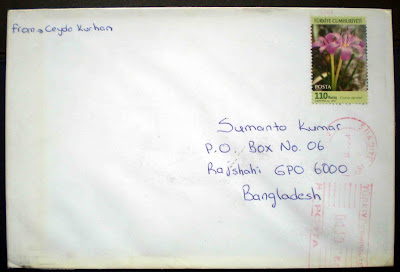 From → Ceyda Kurhan
TÜRKİYE CUMHURİYETİ
POSTA
110 Kuruş
Sumanto Kumar
P.O. Box No. 06
Rajshahi GPO 6000
Bangladesh